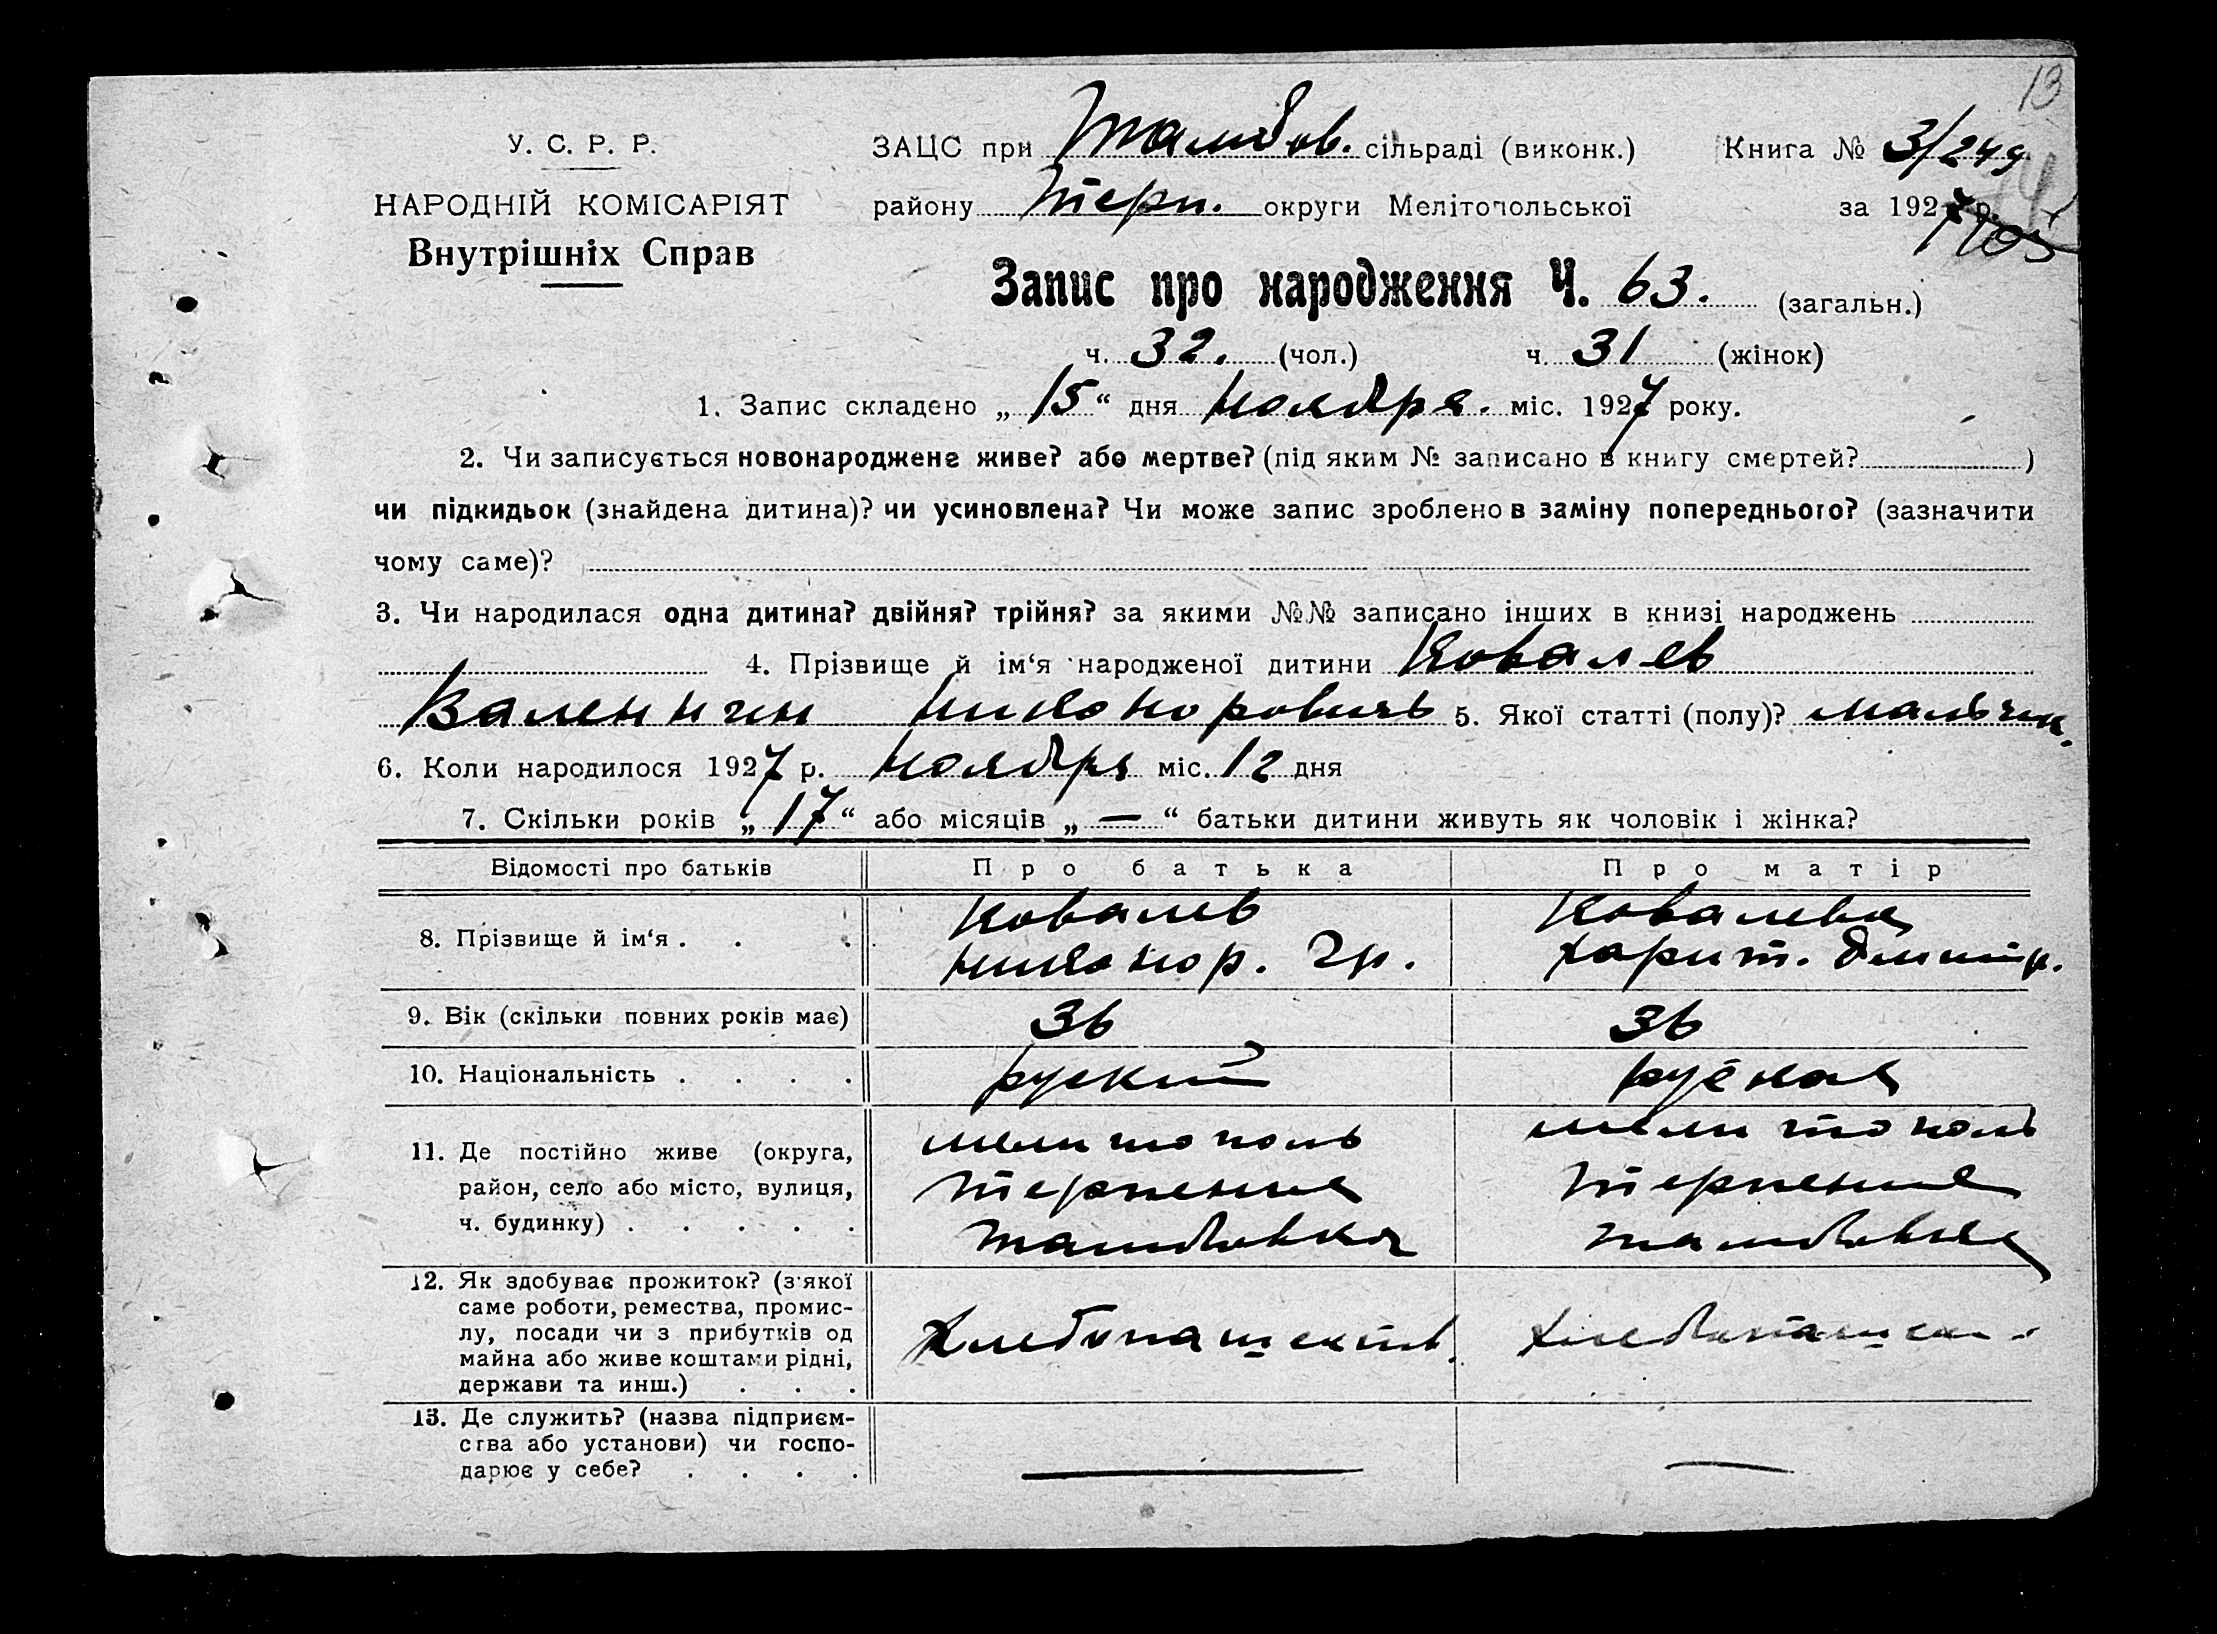 13
У. С. Р. Р.
НАРОДНІЙ КОМІСАРІЯТ
Внутрішніх Справ
ЗАЦС при Тамбов. сільраді (виконк.) Книга № 3/249
району Терп. округи Мелітопольської за 1927 р.
Запис про народження Ч. 63. (загальн.)
ч. 32. (чол.) ч. 31 (жінок)
1. Запис складено „15“ дня Ноября. міс. 1927 року.
2. Чи записується новонароджене живе? або мертве? (під яким № записано в книгу смертей? )
чи підкидьок (знайдена дитина)? чи усиновлена? Чи може запис зроблено в заміну попереднього? (зазначити
чому саме)?
3. Чи народилася одна дитина? двійня? трійня? за якими №№ записано інших в книзі народжень
4. Прізвище й ім‘я народженої дитини Ковалев
Никонорович 5. Якої статті (полу)? мальчик.
6. Коли народилося 1927 р. Ноября міс. 12 дня
7. Скільки років „17“ або місяців „—“ батьки дитини живуть як чоловік і жінка?
Відомості про батьків Про батька Про матір
8. Прізвище й ім‘я . . . Ковалев Никонор. Гр. Ковалева Харит. Дмитр.
9. Вік (скільки повних років має) 36 36
10. Національність . . . . руский руская
11. Де постійно живе (округа, Мелитополь Мелитополь
район, село або місто, вулиця, Терпение Терпение
ч. будинку) . . . . . Тамбовка Тамбовка
12. Як здобуває прожиток? (з‘якої
саме роботи, ремества, промис-
лу, посади чи з прибутків од
майна або живе коштами рідні,
держави та инш.) . . .
13. Де служить? (назва підприєм-
ства або установи) чи госпо-
дарює у себе? . . . .